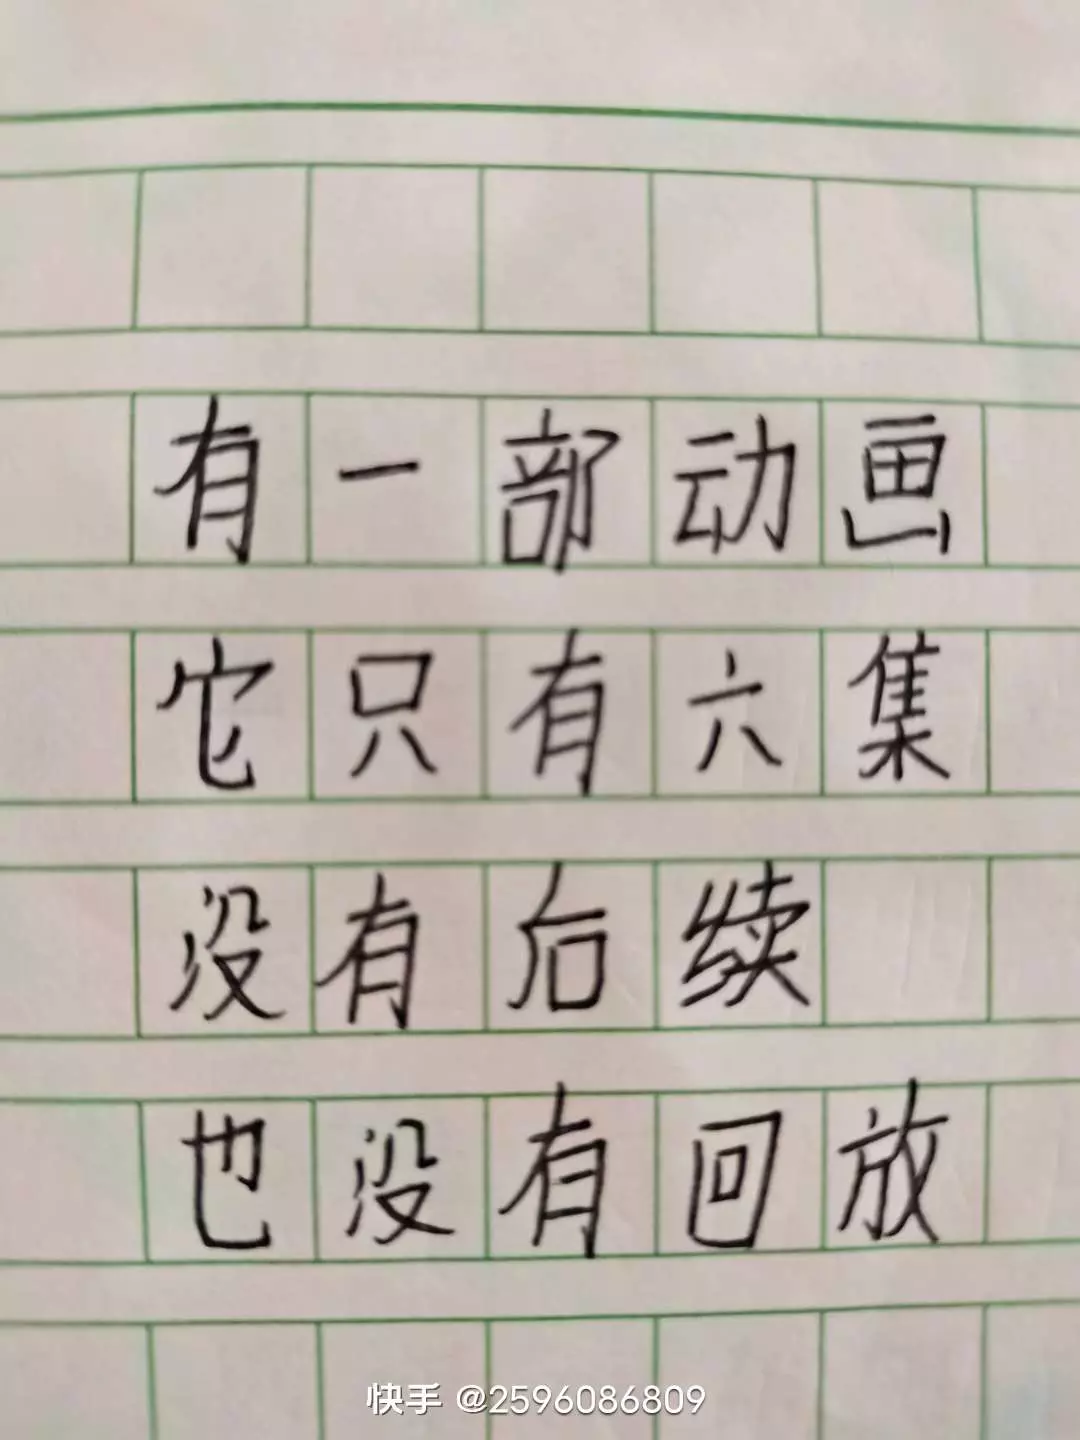 有一部动画
它只有六集
没有后续
也没有回放
快手 @2596086809